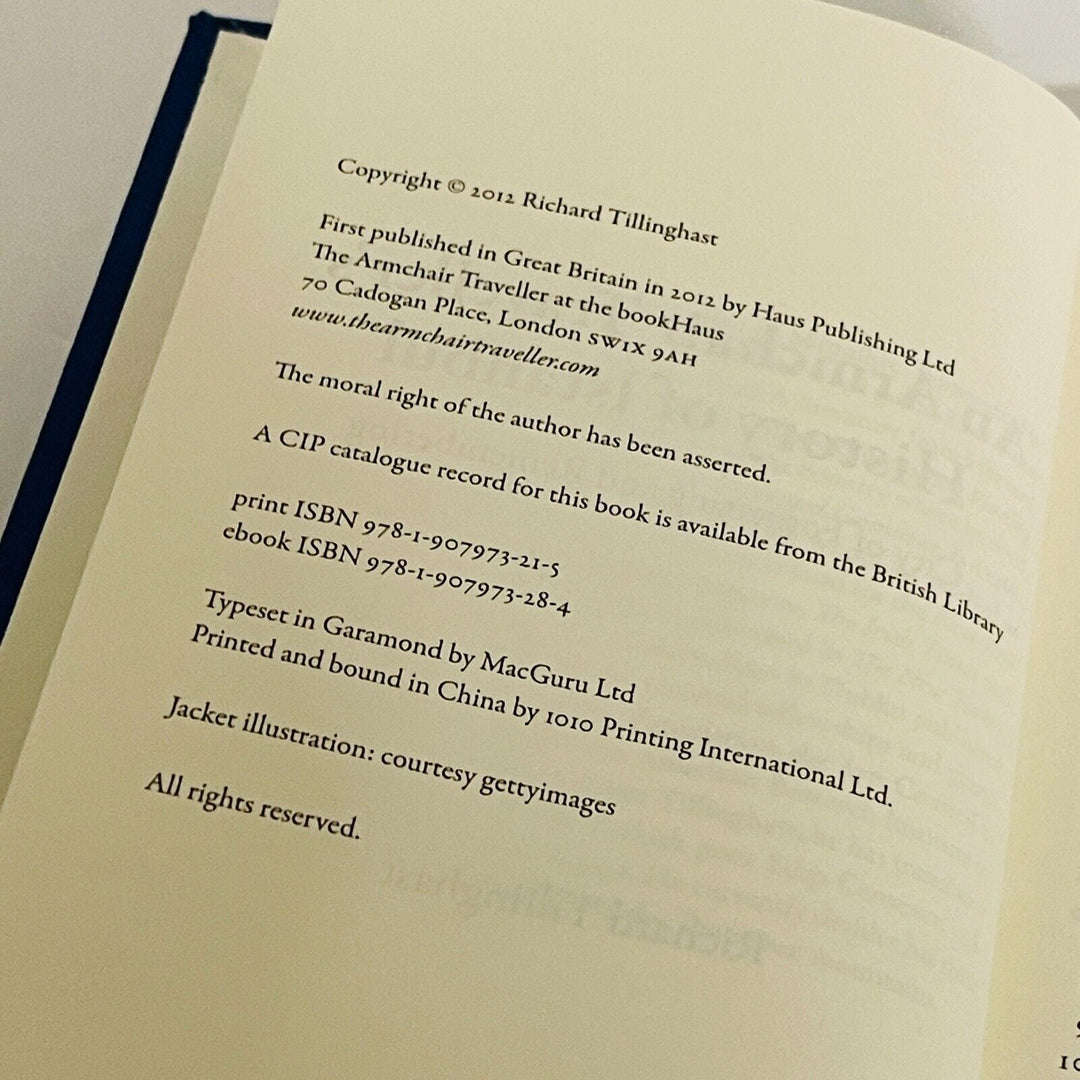 Copyright © 2012 Richard Tillinghast
First published in Great Britain in 2012 by Haus Publishing Ltd
The Armchair Traveller at the bookHaus
70 Cadogan Place, London SW1X 9AH
www.thearmchairtraveller.com
The moral right of the author has been asserted.
A CIP catalogue record for this book is available from the British Library
print ISBN 978-1-907973-21-5
ebook ISBN 978-1-907973-28-4
Typeset in Garamond by MacGuru Ltd
Printed and bound in China by 1010 Printing International Ltd.
Jacket illustration: courtesy gettyimages
All rights reserved.